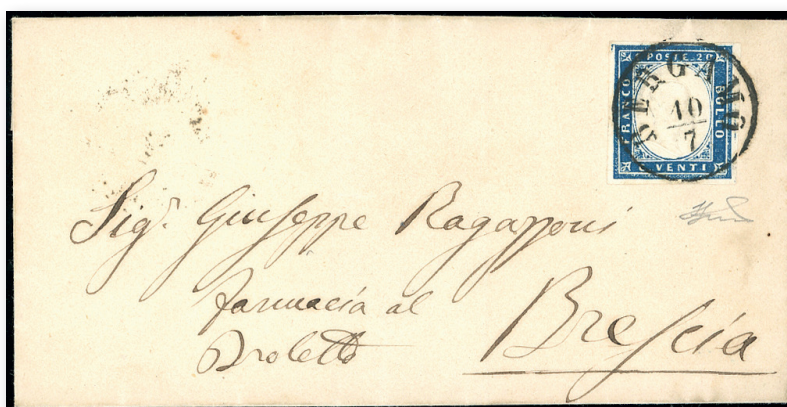 C. POSTE 20
FRANCO
BOLLO
C. VENTI
BERGAMO
10
7
Sig.r Giuseppe Ragazzoni
farmacia al
Broletto
Brescia